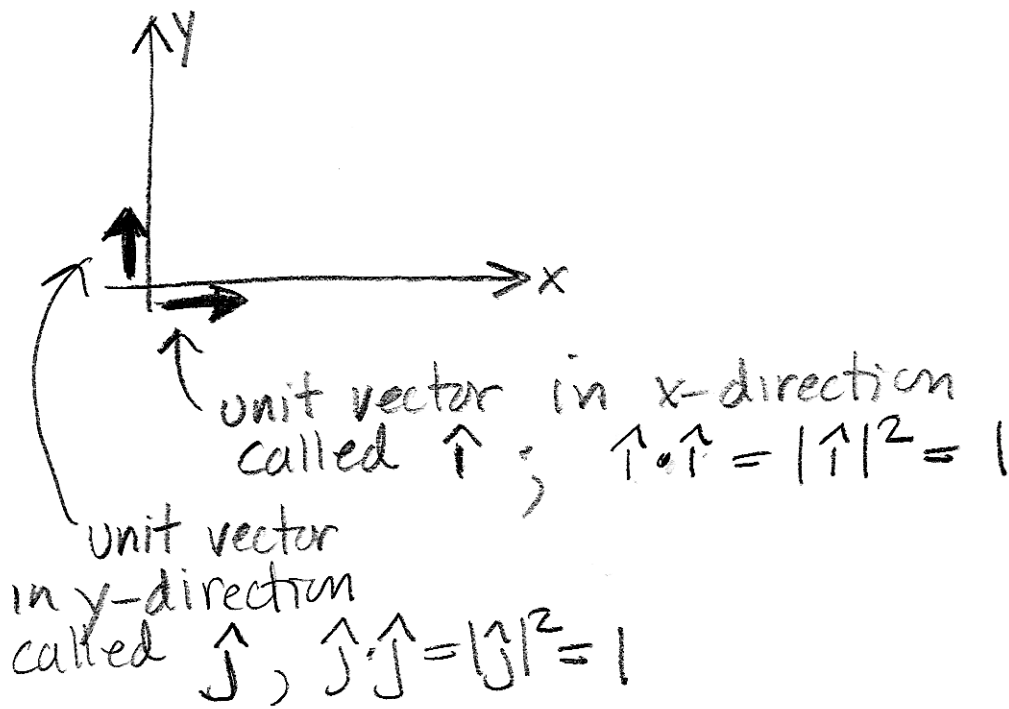 y
x
unit vector in x-direction
called î ; î·î = |î|² = 1
unit vector
in y-direction
called ĵ , ĵ·ĵ = |ĵ|² = 1